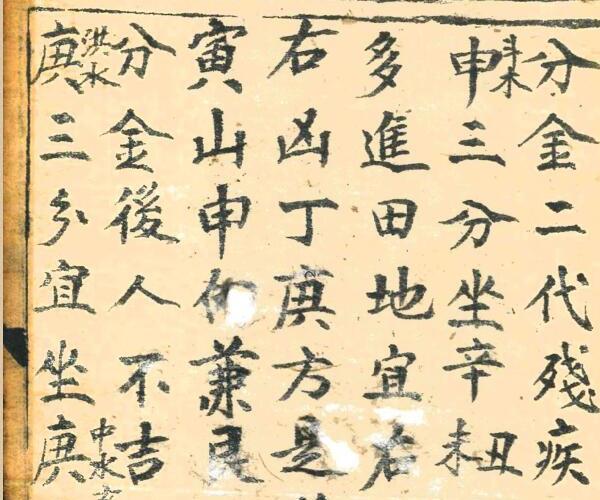 分金二代殘疾
申三分坐辛丑未
多進田地宜右
右凶丁庚方是
寅山申向兼艮
分金後人不吉
洪水
庚三分宜坐庚
中水